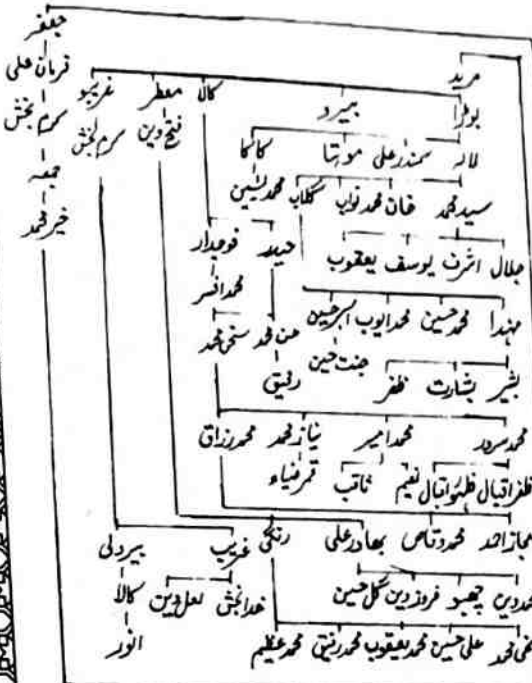 جعفر
مرید
فرمان علی
بوٹا بیرو کالا معطر غریبو
کرم بخش
فتح دین کرم بخش
لالہ سمندر علی موہنا کاکا
جمعہ
سید محمد خان محمد نواب گلاب محمد یٰسین
خیر محمد
حیدر فوجدار
جلال اشرف یوسف یعقوب
محمد افسر
مہندا محمد حسین محمد ایوب اکبر حسین
من محمد سخی محمد
جنت حسین
رفیق
بشیر بشارت ظفر
محمد سرور محمد امیر نیاز محمد محمد رزاق
ظفر اقبال ظہور اقبال نعیم ثاقب قمر ضیاء
اعجاز احمد محمد وقاص بھادر علی رنگی غریب بیر دلی
محمد دین چھبو فروز دین گل حسین خدا بخش لعل دین کالا
سخی محمد علی حسین محمد یعقوب محمد رفیق محمد عظیم انور